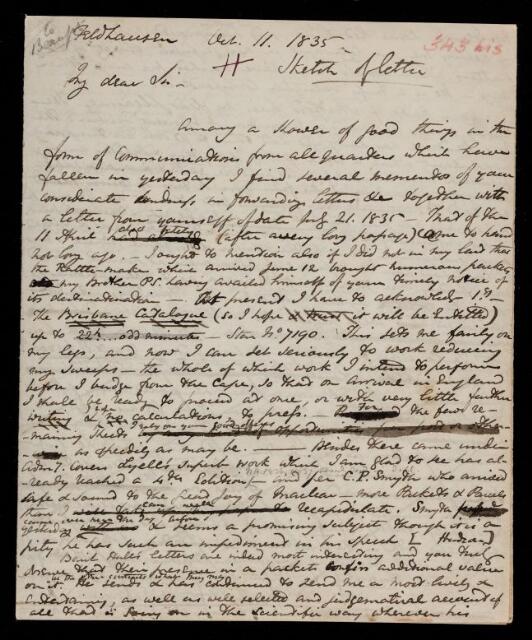 to Beaufort
Feldhausen Oct. 11. 1835
343 bis
# Sketch of letter
My dear Sir –
Among a shower of good things in the
form of Communications from all quarters which have
fallen in yesterday I find several mementos of your
considerate kindness in forwarding letters &c together with
a letter from yourself of date July 21. 1835 – That of the
11 April had also (after a very long passage) come to hand
not long ago. – I ought to mention also if I did not in my last that
the Rattle-snake which arrived June 12 brought numerous packets
my Brother P.S. having availed himself of your timely notice of
its destination – At present I have to acknowledge 1st –
The Brisbane Catalogue (so I hope it will be Entitled)
up to 22h... odd minutes – Star No 7190. This sets me fairly on
my legs, and now I can set seriously to work reducing
my sweeps – the whole of which work I intend to perform
before I budge from the Cape, so that on arrival in England
I shall be ready to proceed at one, or with very little further
writing & no calculations to press. – For the few re-
maining Sheets I rely on your good offices
as speedily as may be. – Besides these came under
Adm.y Covers Lyell's Superb work which I am glad to see has al-
ready reached a 4th Edition – and per C. P. Smyth who arrived
safe & sound to the great joy of Maclear – more Packets & Parcels
than I can well recapitulate. Smyth
yesterday & seems a promising subject though it is a
pity he has such an impediment in his speech [
Basil Hall's letters are indeed most interesting and you may
assure that their presence in a packet confers additional value
on it in the other contents which they may
He has continued to send me a most lively &
entertaining as well as well selected and judgematical account of
all that is going on in the scientific way wherever his